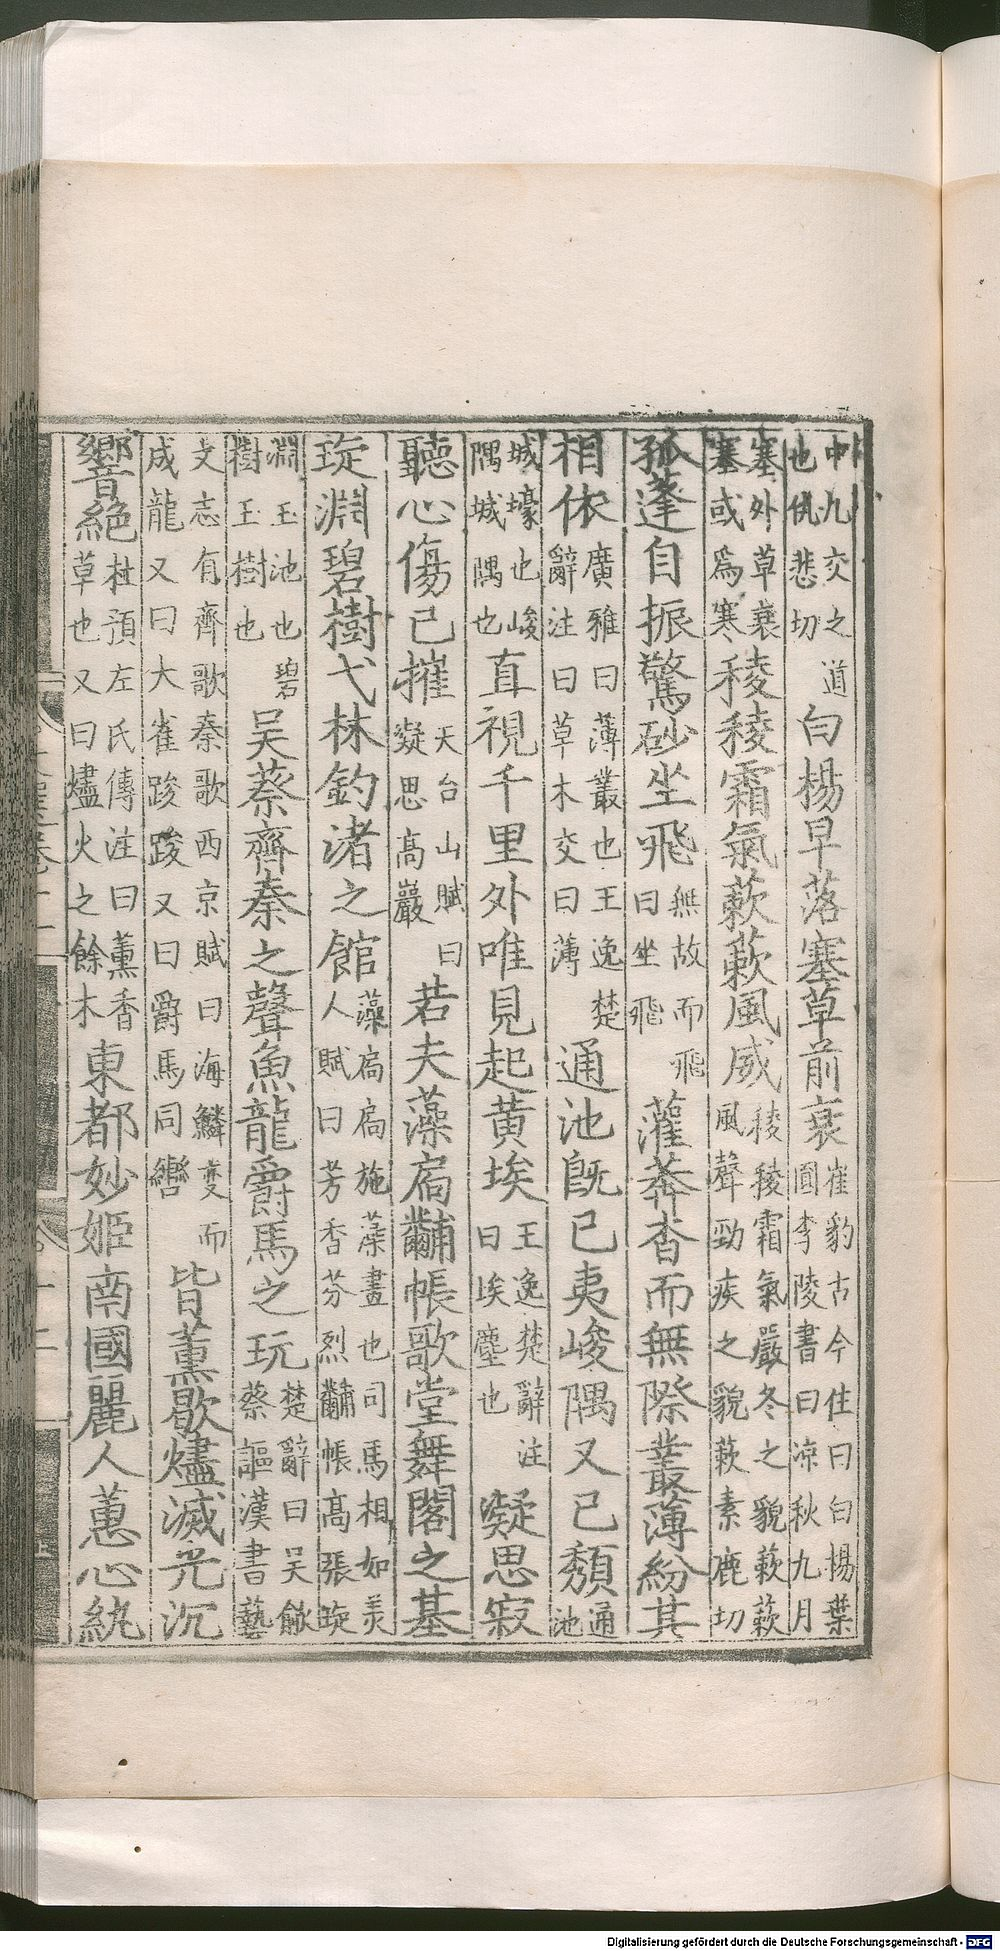 中九交之道也仇悲切白楊早落塞草前衰崔豹古今注曰白楊葉圓李陵書曰凉秋九月
塞外草衰塞或爲寒稜稜霜氣蔌蔌風威稜稜霜氣嚴冬之貌蔌蔌風聲勁疾之貌蔌素鹿切
孤蓬自振驚砂坐飛無故而飛曰坐飛灌莽杳而無際叢薄紛其
相依廣雅曰薄叢也王逸楚辭注曰草木交曰薄通池旣已夷峻隅又已頹通池
城壕也峻隅城隅也直視千里外唯見起黄埃王逸楚辭注曰埃塵也凝思寂
聽心傷已摧天台山賦曰凝思高巖若夫藻扃黼帳歌堂舞閣之基
琁淵碧樹弋林釣渚之館藻扃扃施藻畫也司馬相如美人賦曰芳香芬烈黼帳高張琁
淵玉池也碧樹玉樹也吳蔡齊秦之聲魚龍爵馬之玩楚辭曰吴歈蔡謳漢書藝
文志有齊歌秦歌西京賦曰海鱗變而成龍又曰大雀踆踆又曰爵馬同轡皆薫歇燼滅光沉
響絶杜預左氏傳注曰薫香草也又曰燼火之餘木東都妙姬南國麗人蕙心紈
Digitalisierung gefördert durch die Deutsche Forschungsgemeinschaft - DFG